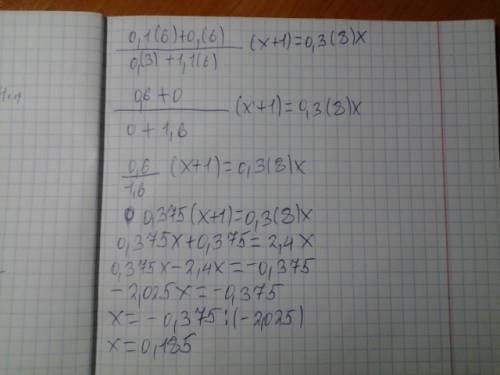 0,1(6)+0,(6)
0,(3)+1,1(6) (x+1)=0,3(8)x
0,6+0
0+1,6 (x+1)=0,3(8)x
0,6
1,6 (x+1)=0,3(8)x
0,375(x+1)=0,3(8)x
0,375x+0,375=2,4x
0,375x-2,4x=-0,375
-2,025x=-0,375
x=-0,375:(-2,025)
x=0,185